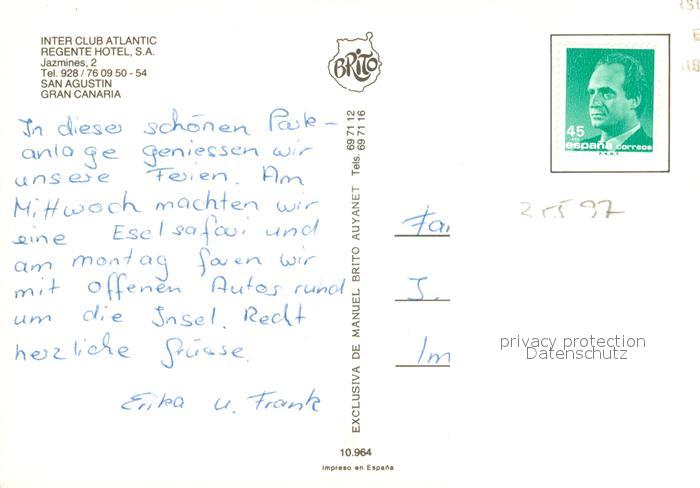 INTER CLUB ATLANTIC
REGENTE HOTEL, S.A.
Jazmines, 2
Tel. 928 / 76 09 50 - 54
SAN AGUSTIN
GRAN CANARIA
In dieser schönen Park-
anlage geniessen wir
unsere Ferien. Am
Mittwoch machten wir
eine Eselsafari und
am montag faren wir
mit offenen Autos rund
um die Insel. Recht
herzliche Grüsse.
Erika u. Frank
BRITO
EXCLUSIVA DE MANUEL BRITO AUYANET Tels. 69 71 12
69 71 16
10.964
Impreso en España
45
españa correos
F.N.M.T.
Fa
I.
Im
privacy protection
Datenschutz